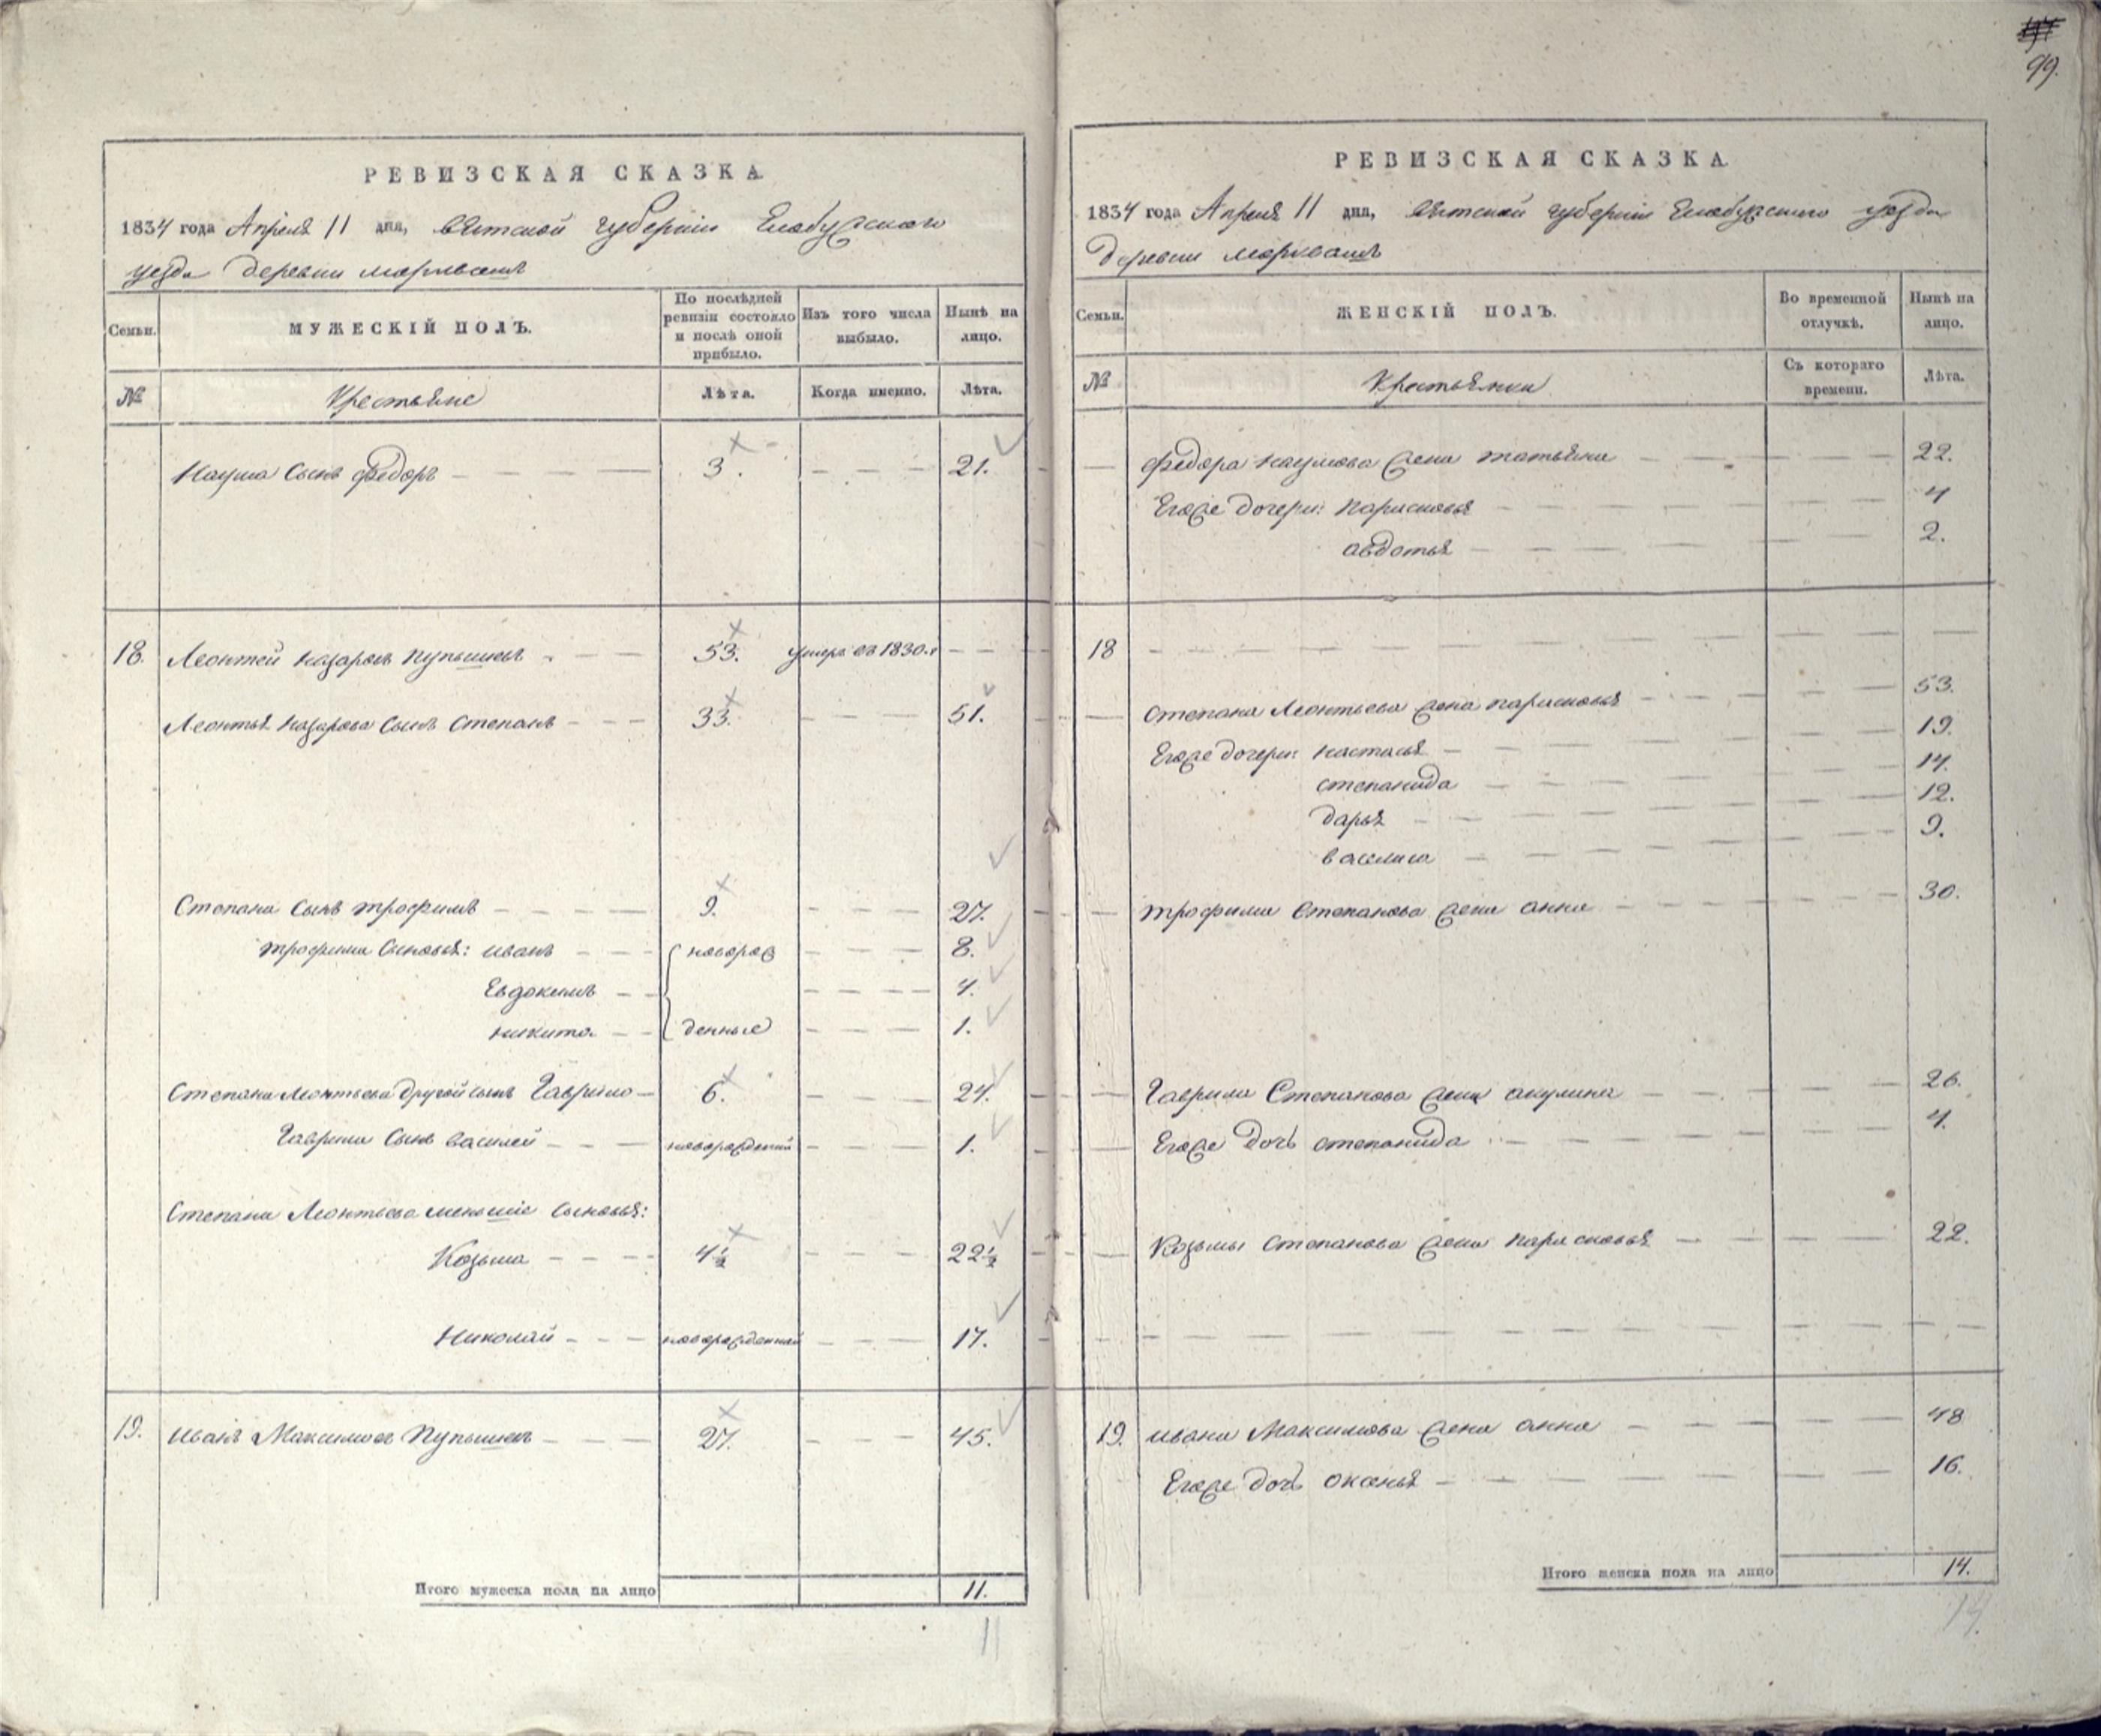 99.
РЕВИЗСКАЯ СКАЗКА.
1834 года Апреля 11 дня, Вятской губернии Елабужского
уезда деревни
Семьи.
МУЖЕСКІЙ ПОЛЪ.
По послѣдней ревизіи состояло и послѣ оной прибыло.
Изъ того числа выбыло.
Нынѣ на лицо.
№
Крестьяне
Лѣта.
Когда именно.
Лѣта.
Наума сынъ Федоръ 3. 21.
18. Леонтей Назаровъ Пупышевъ 53. умеръ въ 1830.
Леонтья Назарова сынъ Степанъ 33. 51.
Степана сынъ Трофимъ 9. 27.
Трофима сыновья: Иванъ новорож 8.
Евдокимъ 4.
Никита денные 1.
Степана Леонтьева другой сынъ Гаврило 6. 24.
Гаврила сынъ Василей новорожденный 1.
Степана Леонтьева меньшіе сыновья:
Козьма 4½ 22½
Николай новорожденный 17.
19. Иванъ Максимовъ Пупышевъ 27. 45.
Итого мужеска пола на лицо 11.
11
РЕВИЗСКАЯ СКАЗКА.
1834 года Апреля 11 дня, Вятской губернии Елабужского уезда
деревни
Семьи.
ЖЕНСКІЙ ПОЛЪ.
Во временной отлучкѣ.
Нынѣ на лицо.
№
Крестьянки
Съ котораго времени.
Лѣта.
Федора Наумова жена Татьяна 22.
Егоже дочери: Парасковья 4
Авдотья 2.
18
Степана Леонтьева жена Парасковья 53.
Егоже дочери: Настасья 19.
Степанида 14.
Дарья 12.
Василиса 9.
Трофима Степанова жена Анна 30.
Гаврила Степанова жена Акулина 26.
Егоже дочь Степанида 4.
Козьмы Степанова жена Парасковья 22.
19. Ивана Максимова жена Анна 48
Егоже дочь Оксенья 16.
Итого женска пола на лицо 14.
14.